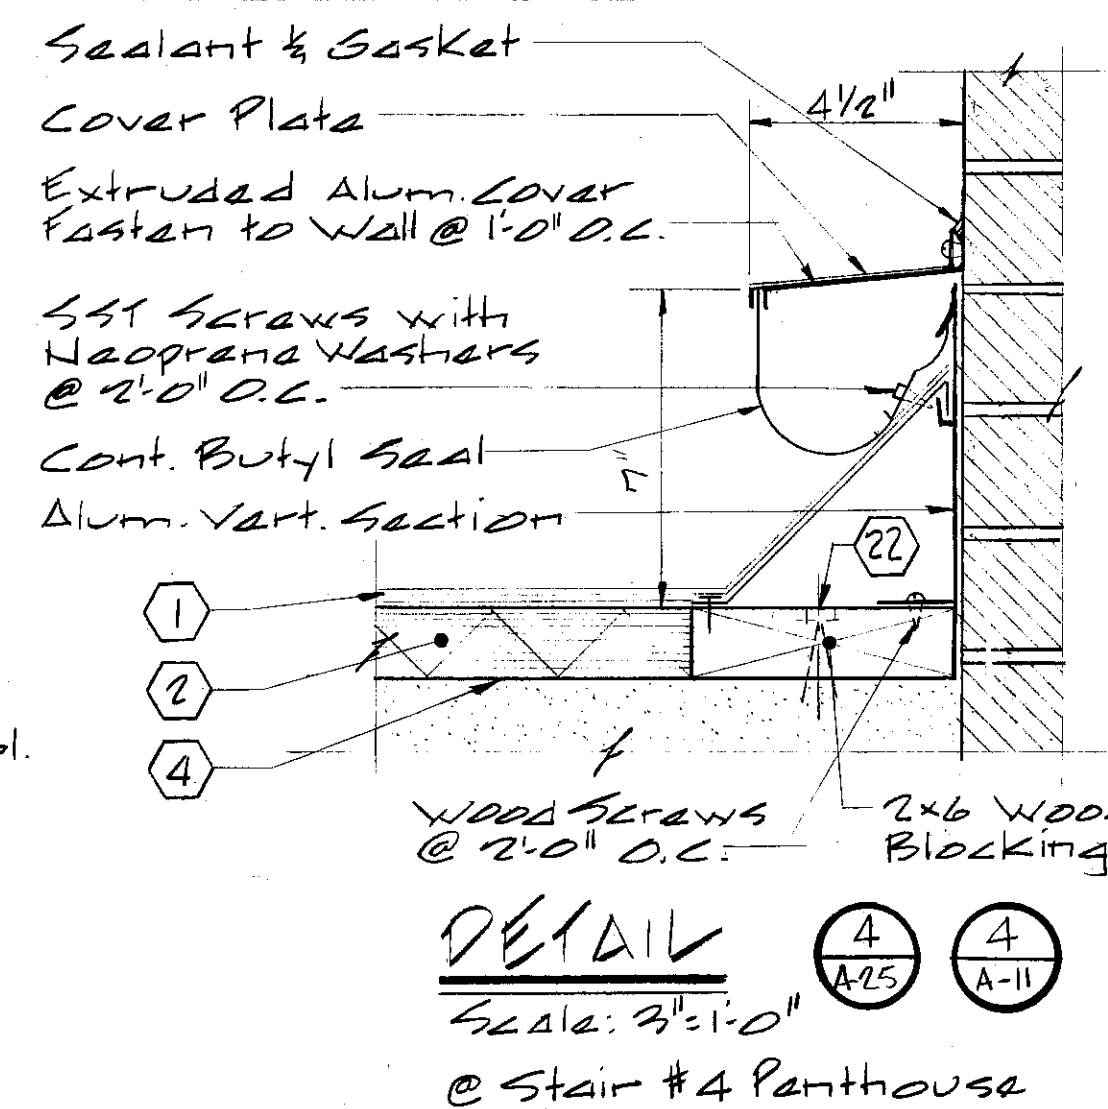 Sealant & Gasket
Cover Plate
4 1/2"
Extruded Alum. Cover
Fasten to Wall @ 1'-0" O.C.
SST Screws with
Neoprene Washers
@ 2'-0" O.C.
Cont. Butyl Seal
7"
Alum. Vert. Section
22
1
2
4
Wood Screws
@ 2'-0" O.C.
2x6 Woo
Blocking
DETAIL
4
A-25
4
A-11
Scale: 3"=1'-0"
@ Stair #4 Penthouse